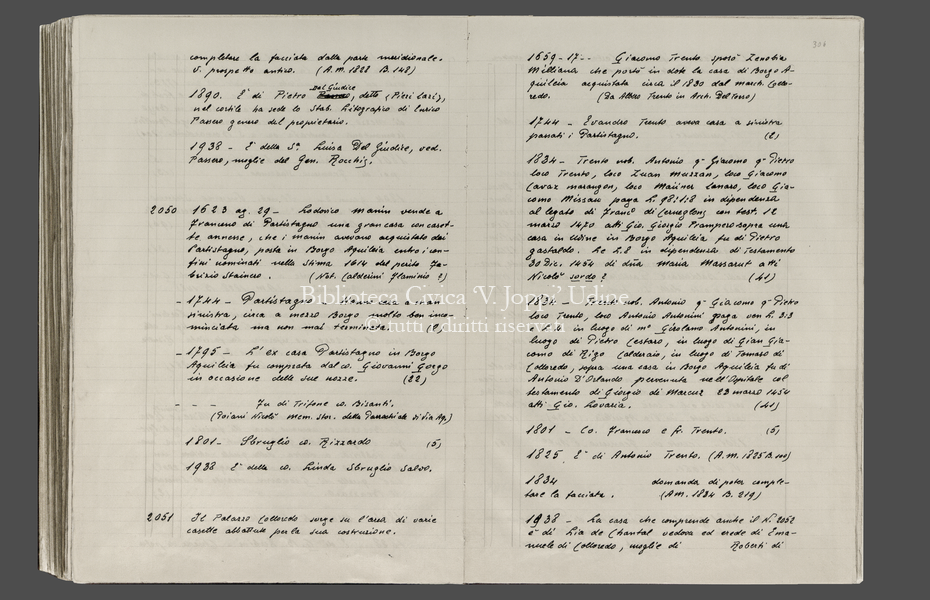 completare la facciata dalla parte meridionale.
V. prospetto antico. (A.M. 1828 B. 148)
Del Giudice
1890. E' di Pietro, detto (Pieri Lari),
nel cortile ha sede lo Stab. Litografico di Enrico
Passero genero del proprietario.
1938 - E' della S.ª Luisa Del Giudice, ved.
Passero, moglie del Gen. Rocchi.
2050 1623 ag. 29 - Lodovico Manin vende a
Francesco di Partistagno una gran casa con caset-
te annesse, che i Manin avevano acquistato dai
Partistagno, posta in Borgo Aquileia entro i con-
fini nominati nella Stima 1614 del perito Fa-
brizio Stainero. (Not. Calderini Flaminio ?)
- 1744 - Partistagno a man
sinistra, circa a mezzo Borgo molto ben inco-
minciata ma non mal terminata. (2)
- 1795 - L'ex casa Partistagno in Borgo
Aquileia fu comprata dal co. Giovanni Gorgo
in occasione delle sue nozze. (22)
- - - Fu di Trifone co. Bisanti.
(Goiani Nicolò Mem. Stor. della Parrocchiale di Via Aq.)
1801 - Sbruglio co. Rizzardo (5)
1938 E' della co. Linda Sbruglio Salvo.
2051 Il Palazzo Colloredo sorge su l'area di varie
casette abbattute per la sua costruzione.
1659-17-- Giacomo Trento sposò Zenobia
Milliana che portò in dote la casa di Borgo A-
quileia acquistata circa il 1830 dal march. Collo-
redo. (Da Albero Trento in Arch. Del Torso)
1744 - Evandro Trento aveva casa a sinistra
passati i Partistagno. (2)
1834 - Trento nob. Antonio q.m Giacomo q.m Pietro
loco Trento, loco Zuan Muzzan, loco Giacomo
Cavax marangon, loco Mainer lanaro, loco Gia-
como Missau paga L. 98:1:8 in dipendenza
al legato di Franc.º di Cerneglons con test. 12
marzo 1470 atti Gio. Giorgio Trampero sopra una
casa in Udine in Borgo Aquileia fu di Pietro
gastaldo. in dipendenza di Testamento
30 Dic. 1454 di dña Maria Massarut atti
Nicolò sordo ? (41)
1834 - Trento nob. Antonio q.m Giacomo q.m Pietro
loco Trento, loco Antonio Antonini paga
in luogo di m.º Girolamo Antonini, in
luogo di Pietro Cestaro, in luogo di Gian Gia-
como di Rigo calderaio, in luogo di Tomaso di
Colloredo, sopra una casa in Borgo Aquileia fu di
Antonio D'Orlando pervenuta nell'Ospitale col
testamento di Giorgio di Marcuz 23 marzo 1454
atti Gio. Lovaria. (41)
1801 - Co. Francesco e fr. Trento. (5)
1825 E' di Antonio Trento. (A.M. 1825 B. 100)
1834 domanda di poter comple-
tare la facciata. (A.M. 1834 B. 219)
1938 - La casa che comprende anche il N. 2052
è di Lia de Chantal vedova ed erede di Ema-
nuele di Colloredo, moglie di Roberti di
Biblioteca Civica 'V. Joppi' Udine
© tutti i diritti riservati